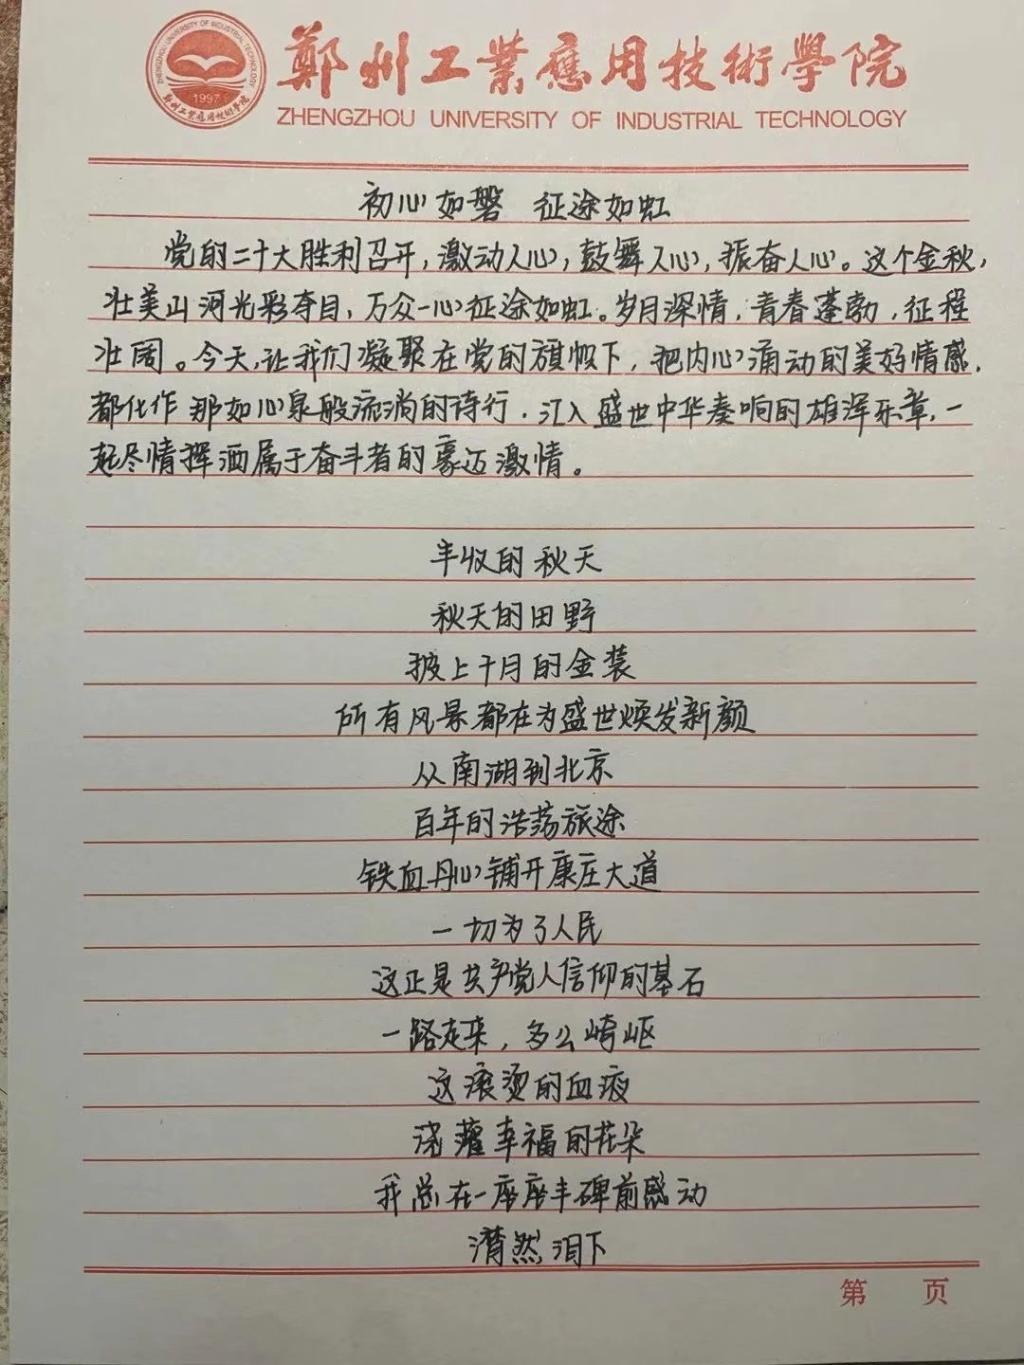 鄭州工業應用技術學院
ZHENGZHOU UNIVERSITY OF INDUSTRIAL TECHNOLOGY
ZHENGZHOU UNIVERSITY OF INDUSTRIAL TECHNOLOGY
1997
鄭州工業應用技術學院
初心如磐 征途如虹
党的二十大胜利召开,激动人心,鼓舞人心,振奋人心。这个金秋,
壮美山河光彩夺目,万众一心征途如虹。岁月深情,青春蓬勃,征程
壮阔。今天,让我们凝聚在党的旗帜下,把内心涌动的美好情感,
都化作那如心泉般流淌的诗行,汇入盛世中华奏响的雄浑乐章,一
起尽情挥洒属于奋斗者的豪迈激情。
丰收的秋天
秋天的田野
披上十月的金装
所有风景都在为盛世焕发新颜
从南湖到北京
百年的浩荡旅途
铁血丹心铺开康庄大道
一切为了人民
这正是共产党人信仰的基石
一路走来,多么崎岖
这滚烫的血液
浇灌幸福的花朵
我总在一座座丰碑前感动
潸然泪下
第 页